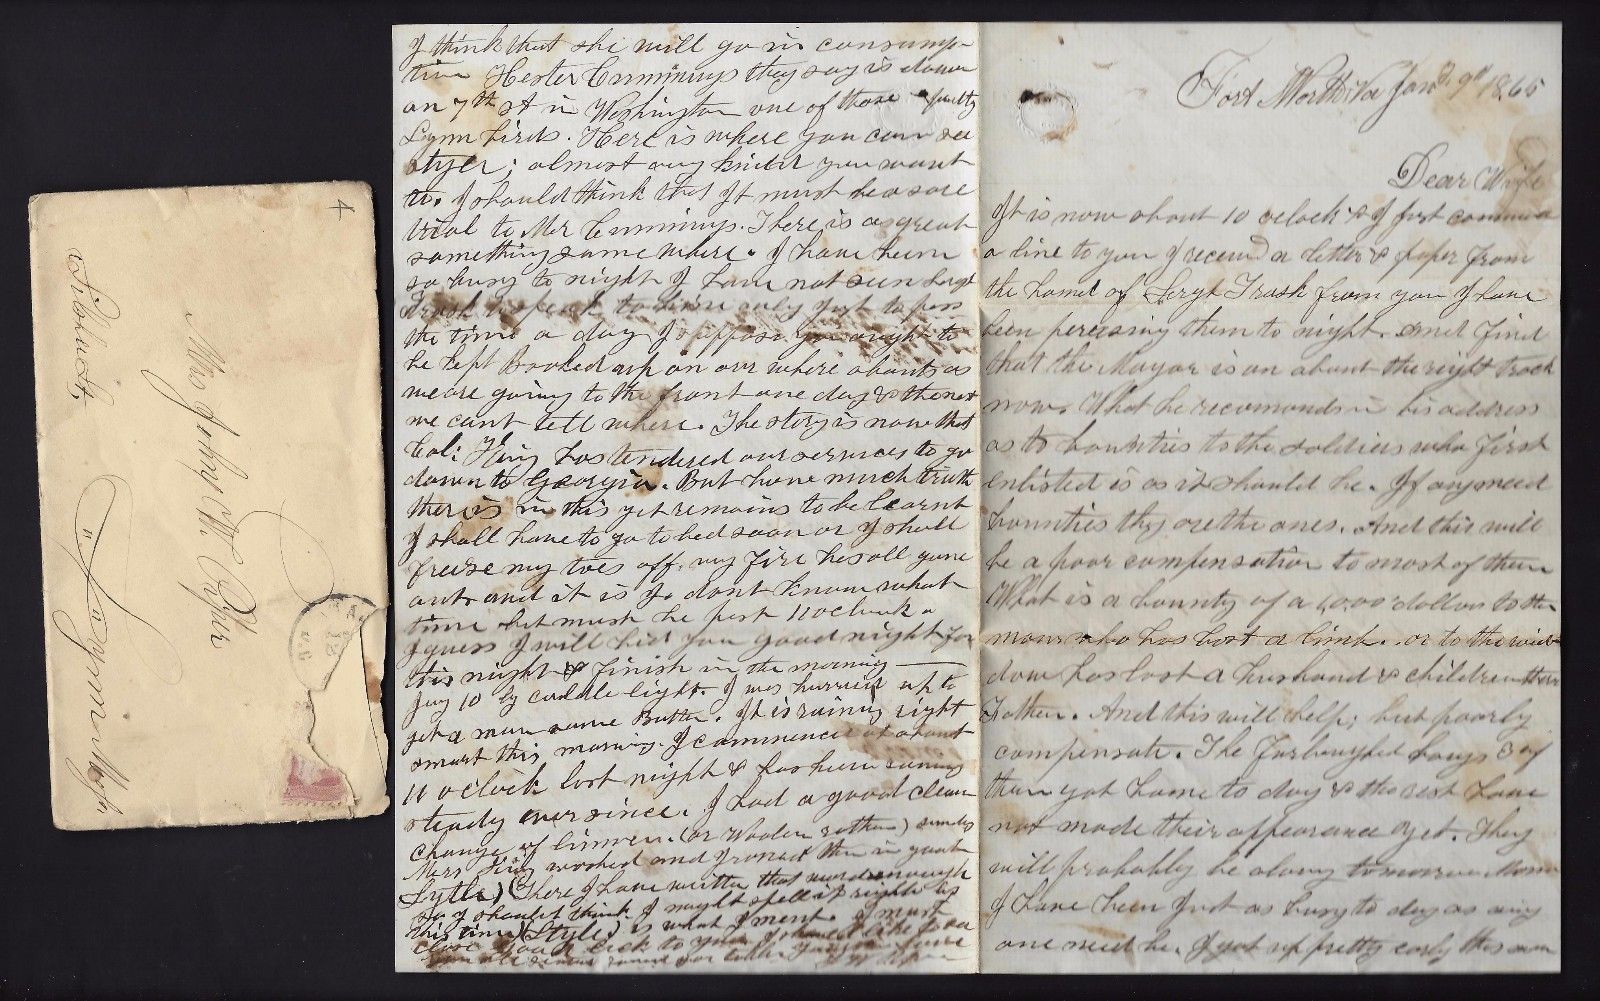 Fort Worth Va Jan 9th 1865
Dear Wife
It is now about 10 oclock & I first commence
a line to you I received a letter & paper from
the hand of Sergt Trask from you I have
been perussing them to night. And find
that the Mayor is on about the right track
now. What he recomonds in his address
as to bounties to the soldiers who first
enlisted is as it should be. If any need
bounties they are the ones. And this will
be a poor compensation to most of them
What is a bounty of a 1,000 dollars to the
man who has lost a limb. or to the wid
dow has lost a husband & children their
Father. And this will help; but poorly
compensate. The furloughed boys 3 of
them got home to day & the rest have
not made their appearance yet. They
will probably be along tomorrow
I have been just as busy to day as any
one need be. I got up pretty early this
I think that she will go in consump-
tion Hester Cummings they say is down
on 7th st in Washington one of those pretty
Lynn birds. Here is where you can see
styer; almost any kind you want
to. I should think that It must be a sore
trial to Mr Cummings. There is a great
something some where. I have been
so busy to night I have not seen Sergt
Trask to speak to him only just to pass
the time a day I suppose you ought to
be kept Booked up on our where abouts as
we are going to the front one day & the next
we cant tell where. The story is now that
Col: King has tendered our services to go
down to Georgia. But how much truth
there is in this yet remains to be learnt
I shall have to go to bed soon or I shall
freeze my toes off. my fire has all gone
out and it is I dont know what
time but must be past 11 oclock
I guess I will bid you good night for
this night & finish in the morning
Jany 10 by candle light. I was hurried up to
get a man some Butter. It is raining right
smart this morning. It commenced at about
11 oclock last night & has been raining
steady ever since. I had a good clean
change of linnen. (or Woolen rather)
Mrs King washed and Ironed them in great
Lytle) (There I have written that word enough
so I should think I might spell it right by
this time) (Style) is what I ment. I must
close
Mrs Joseph W.
Lynn Mass
4